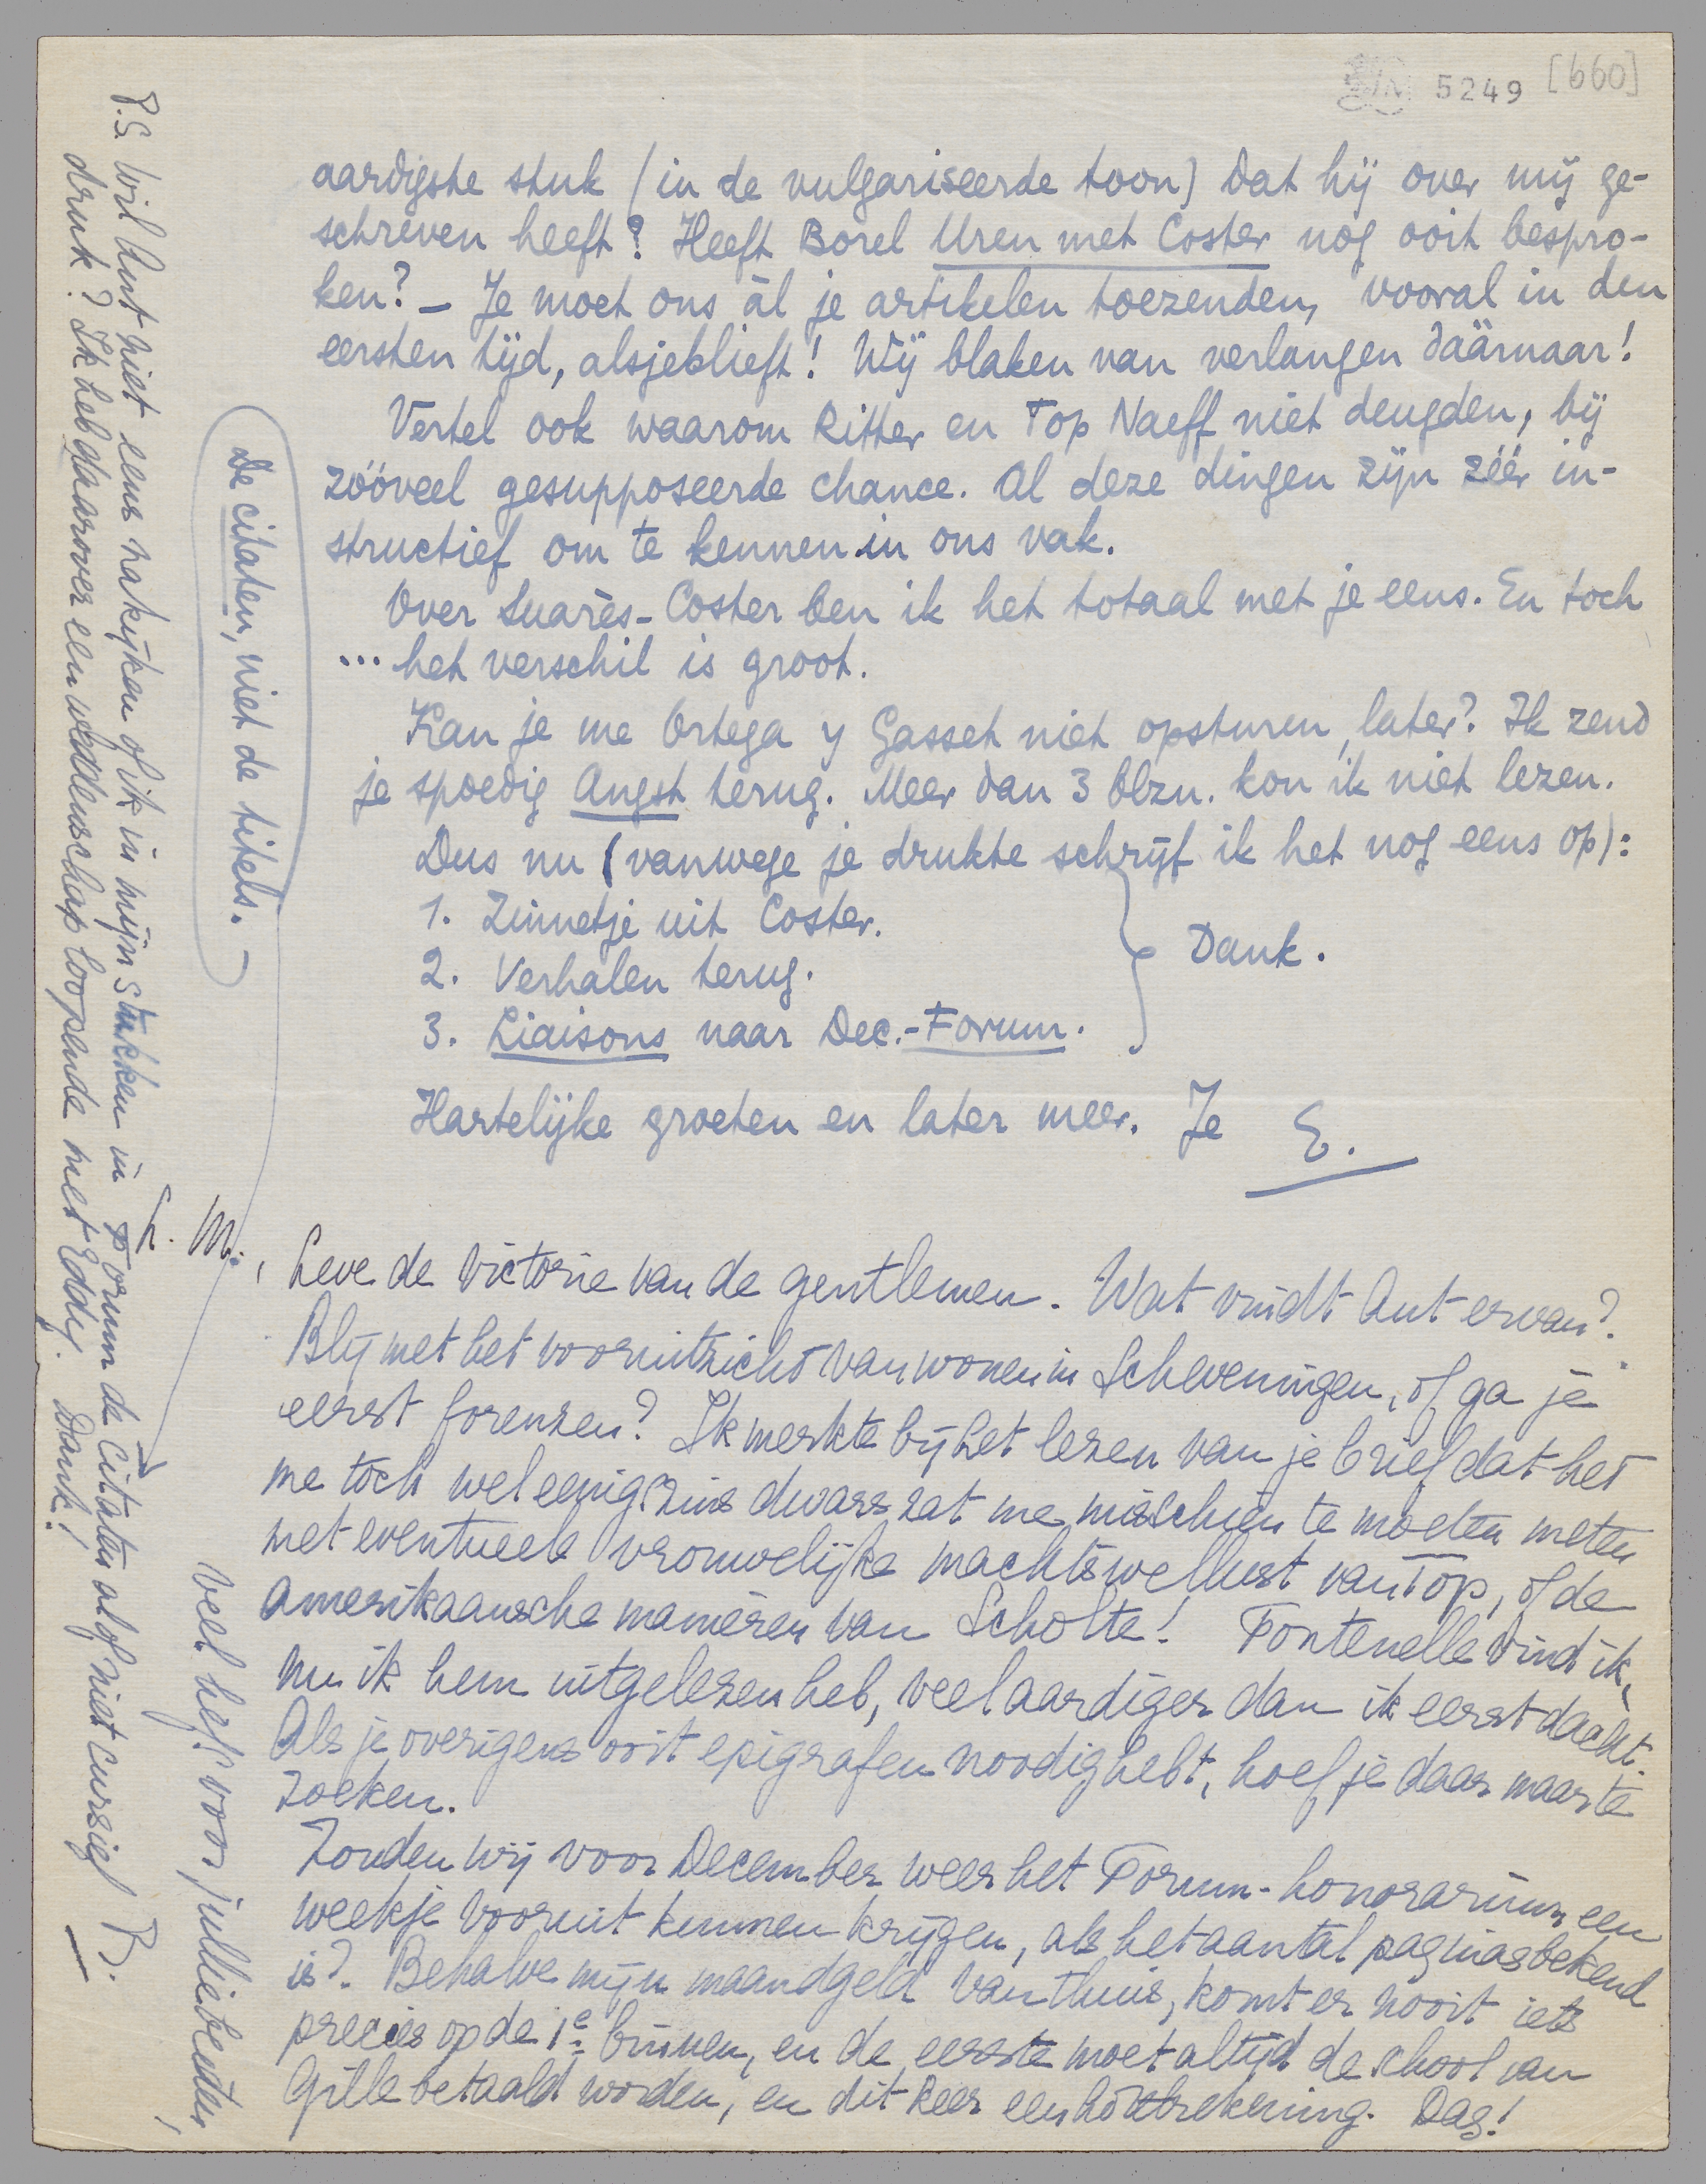 5249 [660]
aardigste stuk (in de vulgariseerde toon) dat hij over mij ge-
schreven heeft? Heeft Borel Uren met Coster nog ooit bespro-
ken? – Je moet ons àl je artikelen toezenden, vooral in den
eersten tijd, alsjeblieft! Wij blaken van verlangen dáárnaar!
Vertel ook waarom Ritter en Top Naeff niet deugden, bij
zóóveel gesupposeerde chance. Al deze dingen zijn zéér in-
structief om te kennen in ons vak.
Over Suarès-Coster ben ik het totaal met je eens. En toch
... het verschil is groot.
Kan je me Ortega y Gasset niet opsturen, later? Ik zend
je spoedig Angst terug. Meer dan 3 blzn. kon ik niet lezen.
Dus nu (vanwege je drukte schrijf ik het nog eens op):
1. Zinnetje uit Coster.
2. Verhalen terug.
3. Liaisons naar Dec.-Forum.
Dank.
Hartelijke groeten en later meer. Je E.
L. M.,
Leve de victorie van de gentlemen. Wat vindt Ant ervan?
Blij met het vooruitzicht van wonen in Scheveningen, of ga je
eerst forenzen? Ik merkte bij het lezen van je brief dat het
me toch wel eenigszins dwars zat me misschien te moeten meten
met eventueele vrouwelijke machtswellust van Top, of de
Amerikaansche manieren van Scholte! Fontenelle vind ik,
nu ik hem uitgelezen heb, veel aardiger dan ik eerst dacht.
Als je overigens ooit epigrafen noodig hebt, hoef je daar maar te
zoeken.
Zouden wij voor December weer het Forum-honorarium een
weekje vooruit kunnen krijgen, als het aantal paginas bekend
is? Behalve mijn maandgeld van thuis, komt er nooit iets
precies op de 1e binnen, en de eerste moet altijd de school van
Gille betaald worden, en dit keer een houtrekening. Dag!
veel liefs voor jullie beiden,
P.S. Wil Ant niet eens nakijken of ik in mijn stukken in Forum de citaten al of niet cursief
druk? Ik heb daarover een weddenschap loopende met Eddy. Dank!
De citaten, niet de titels. –